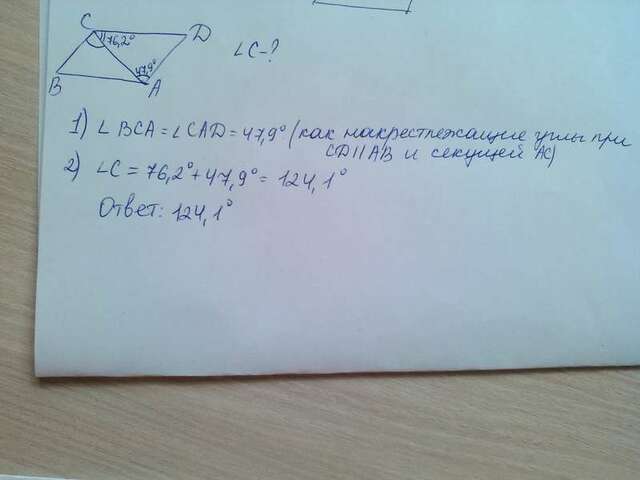 C
76,2°
D
∠C-?
47,9°
B
A
1) ∠BCA = ∠CAD = 47,9° (как накрестлежащие углы при
CD || AB и секущей AC)
2) ∠C = 76,2° + 47,9° = 124,1°
Ответ: 124,1°